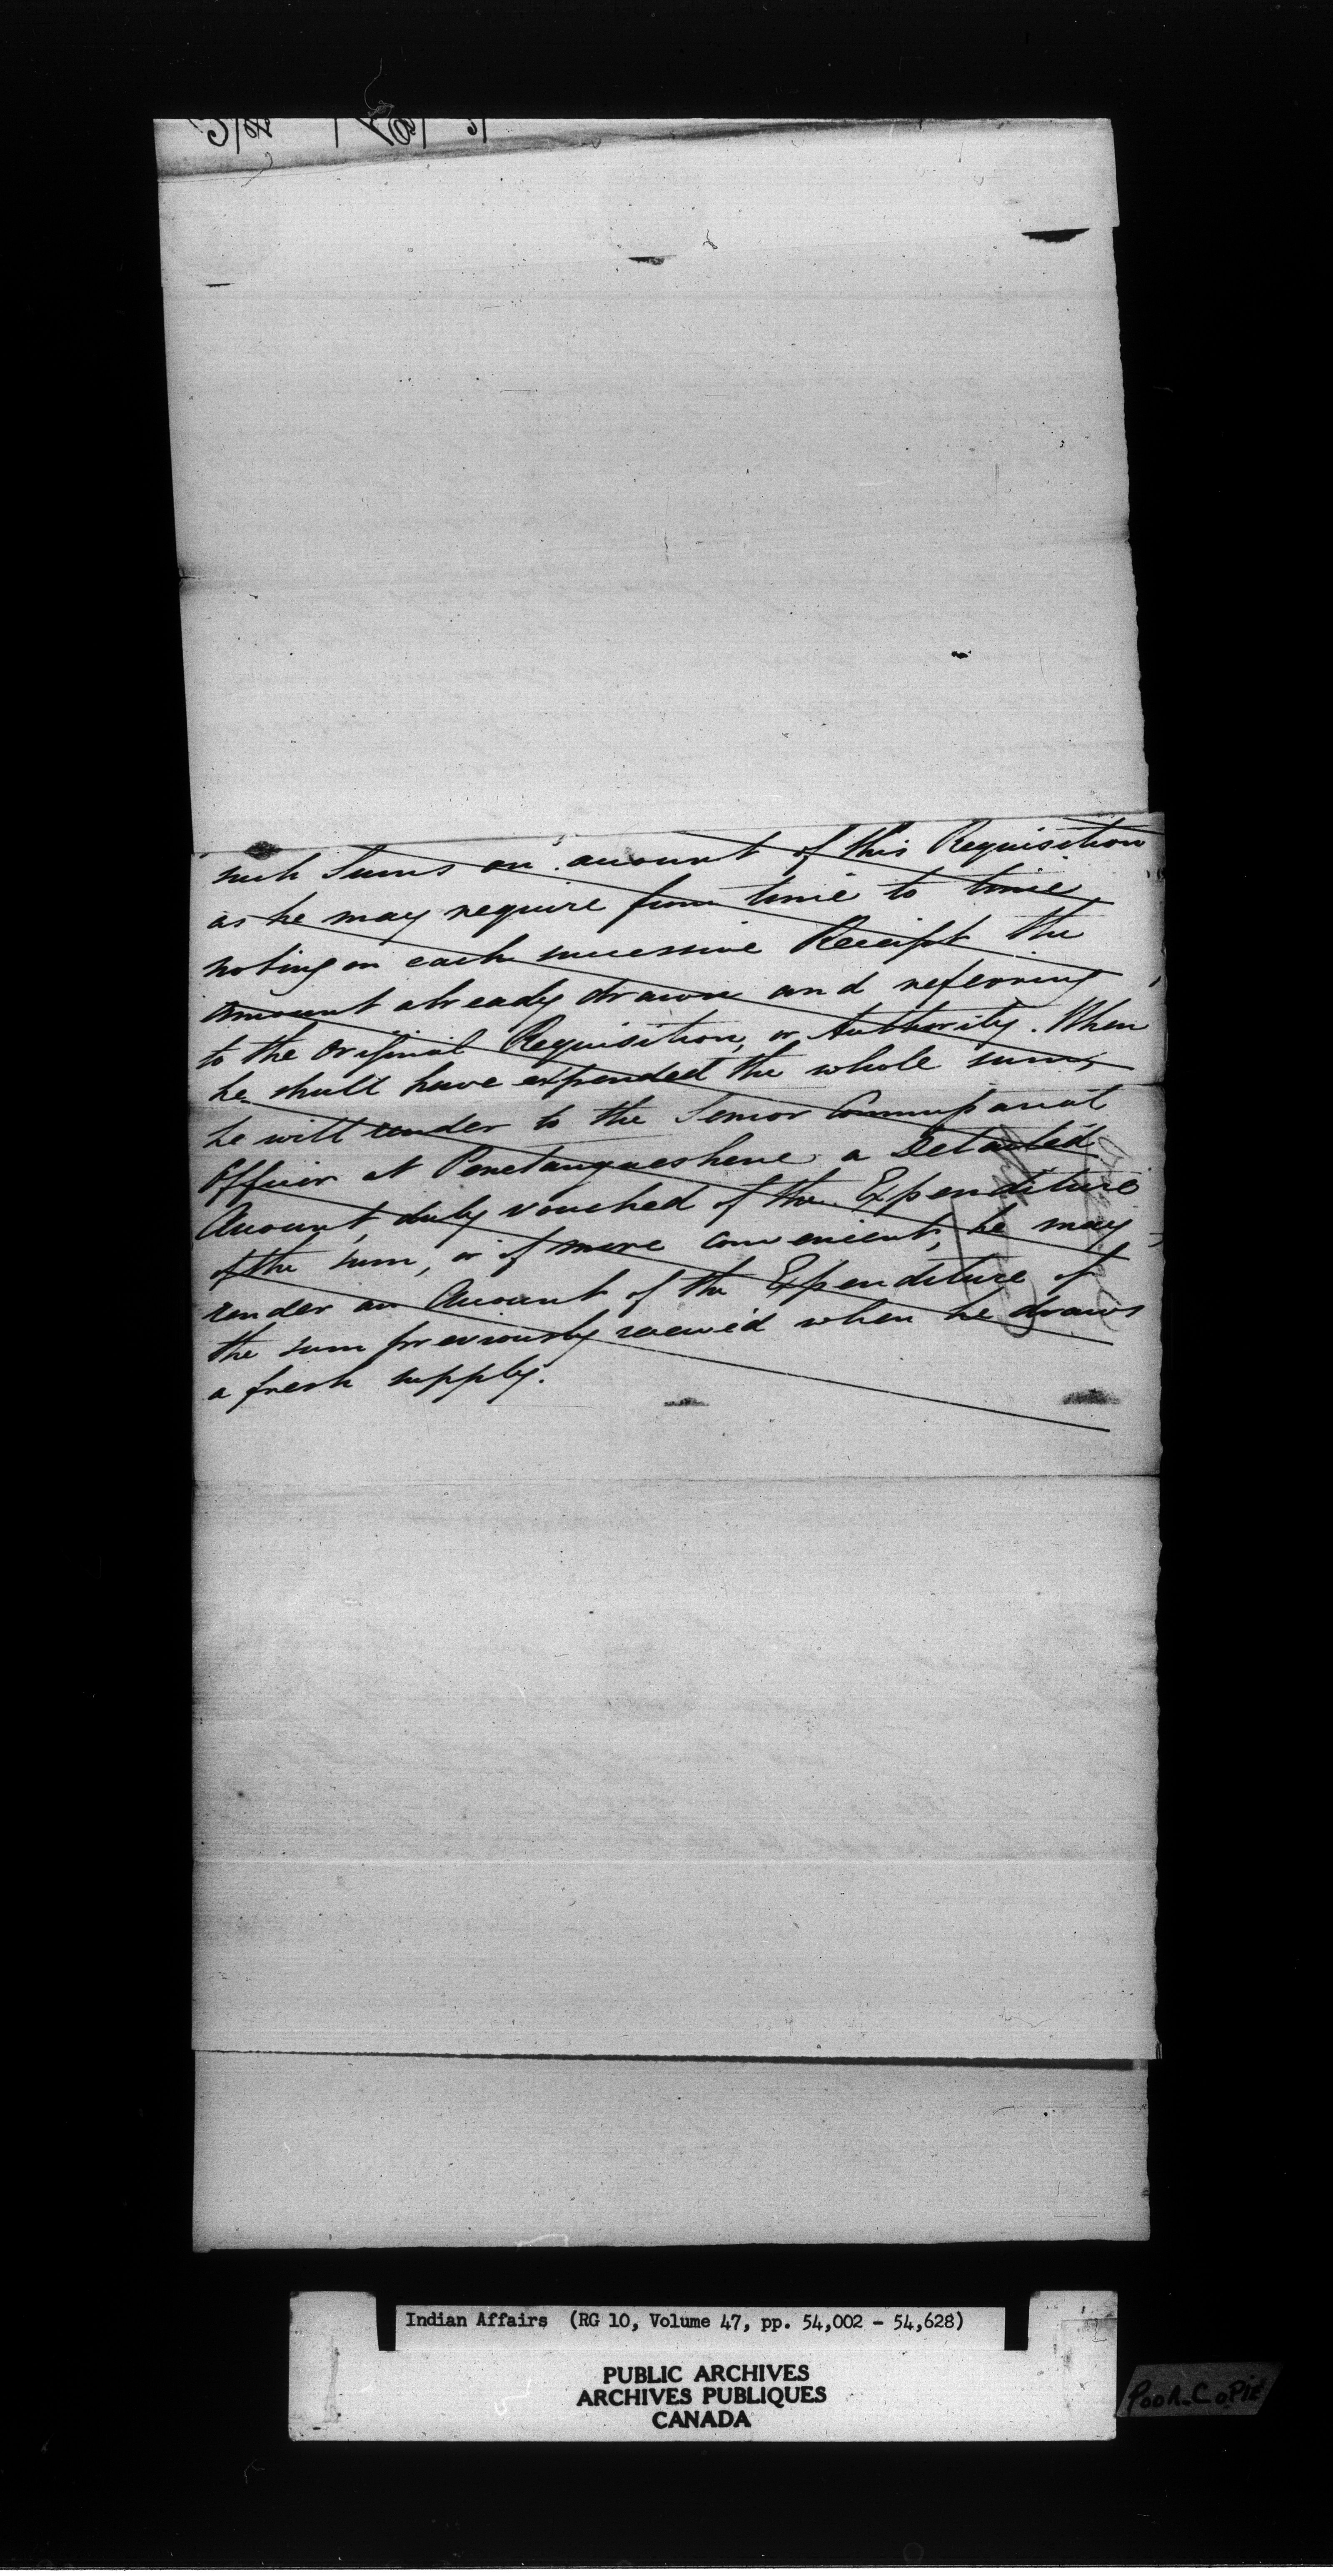 such Sums on account of this Requisition
as he may require from time to time
noting on each successive Receipt the
amount already drawn and referring
to the Original Requisition, or Authority. When
he shall have expended the whole sum,
he will render to the Senior Commissariat
Officer at Penetanguishene a Detailed
Account, duly vouched of the Expenditure
of the sum, or if more convenient, he may
render an Account of the Expenditure of
the sum previously received when he draws
a fresh supply.
Indian Affairs (RG 10, Volume 47, pp. 54,002 - 54,628)
PUBLIC ARCHIVES
ARCHIVES PUBLIQUES
CANADA
POOR COPIE